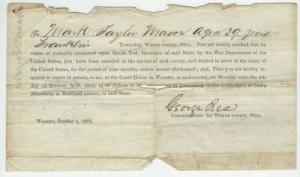 To Mark Taylor Mason Aged 29 years
Franklin Township, Wayne county, Ohio. You are hereby notified that by
virtue of authority conferred upon David Tod, Governor of said State, by the War Department of the
United States, you have been enrolled in the militia of said county, and drafted to serve in the army of
the United States, for the period of nine months, unless sooner discharged; and, That you are hereby
required to report in person, to me, at the Court House in Wooster, in said county, on Monday next, the
day of October, A.D. 1862, at 10 o'clock A. M.
Mansfield, in Richland county, in said State.
George Rex
Commissioner for Wayne county, Ohio.
Wooster, October 4, 1862.